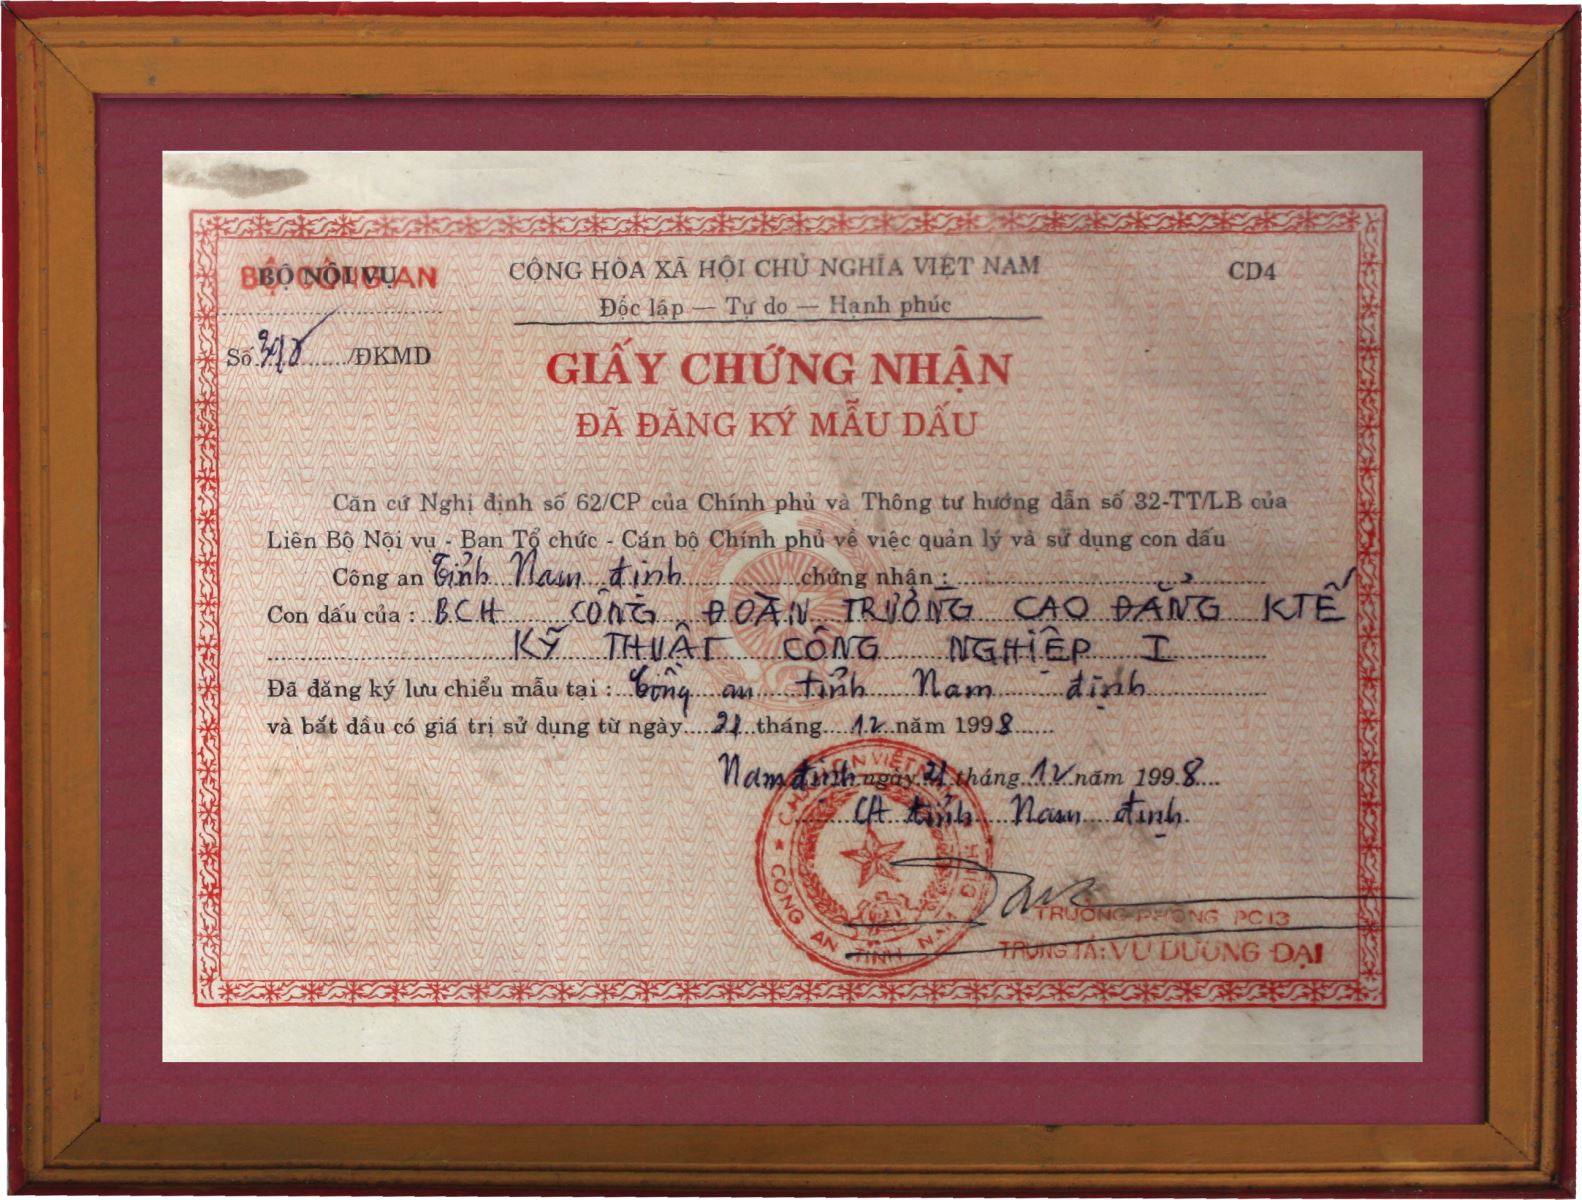 BỘ NỘI VỤ
BỘ CÔNG AN
CỘNG HÒA XÃ HỘI CHỦ NGHĨA VIỆT NAM
CD4
Độc lập — Tự do — Hạnh phúc
Số /ĐKMD
GIẤY CHỨNG NHẬN
ĐÃ ĐĂNG KÝ MẪU DẤU
Căn cứ Nghị định số 62/CP của Chính phủ và Thông tư hướng dẫn số 32-TT/LB của
Liên Bộ Nội vụ - Ban Tổ chức - Cán bộ Chính phủ về việc quản lý và sử dụng con dấu
Công an Tỉnh Nam định chứng nhận :
Con dấu của : BCH CÔNG ĐOÀN TRƯỜNG CAO ĐẲNG KTẾ
KỸ THUẬT CÔNG NGHIỆP I
Đã đăng ký lưu chiểu mẫu tại : Công an tỉnh Nam định
và bắt đầu có giá trị sử dụng từ ngày 21 tháng 12 năm 1998
Nam định ngày 21 tháng 12 năm 1998
CA tỉnh Nam định
CÔNG AN TỈNH NAM ĐỊNH
TRƯỞNG PHÒNG PC13
TRUNG TÁ: VŨ DƯƠNG ĐẠI